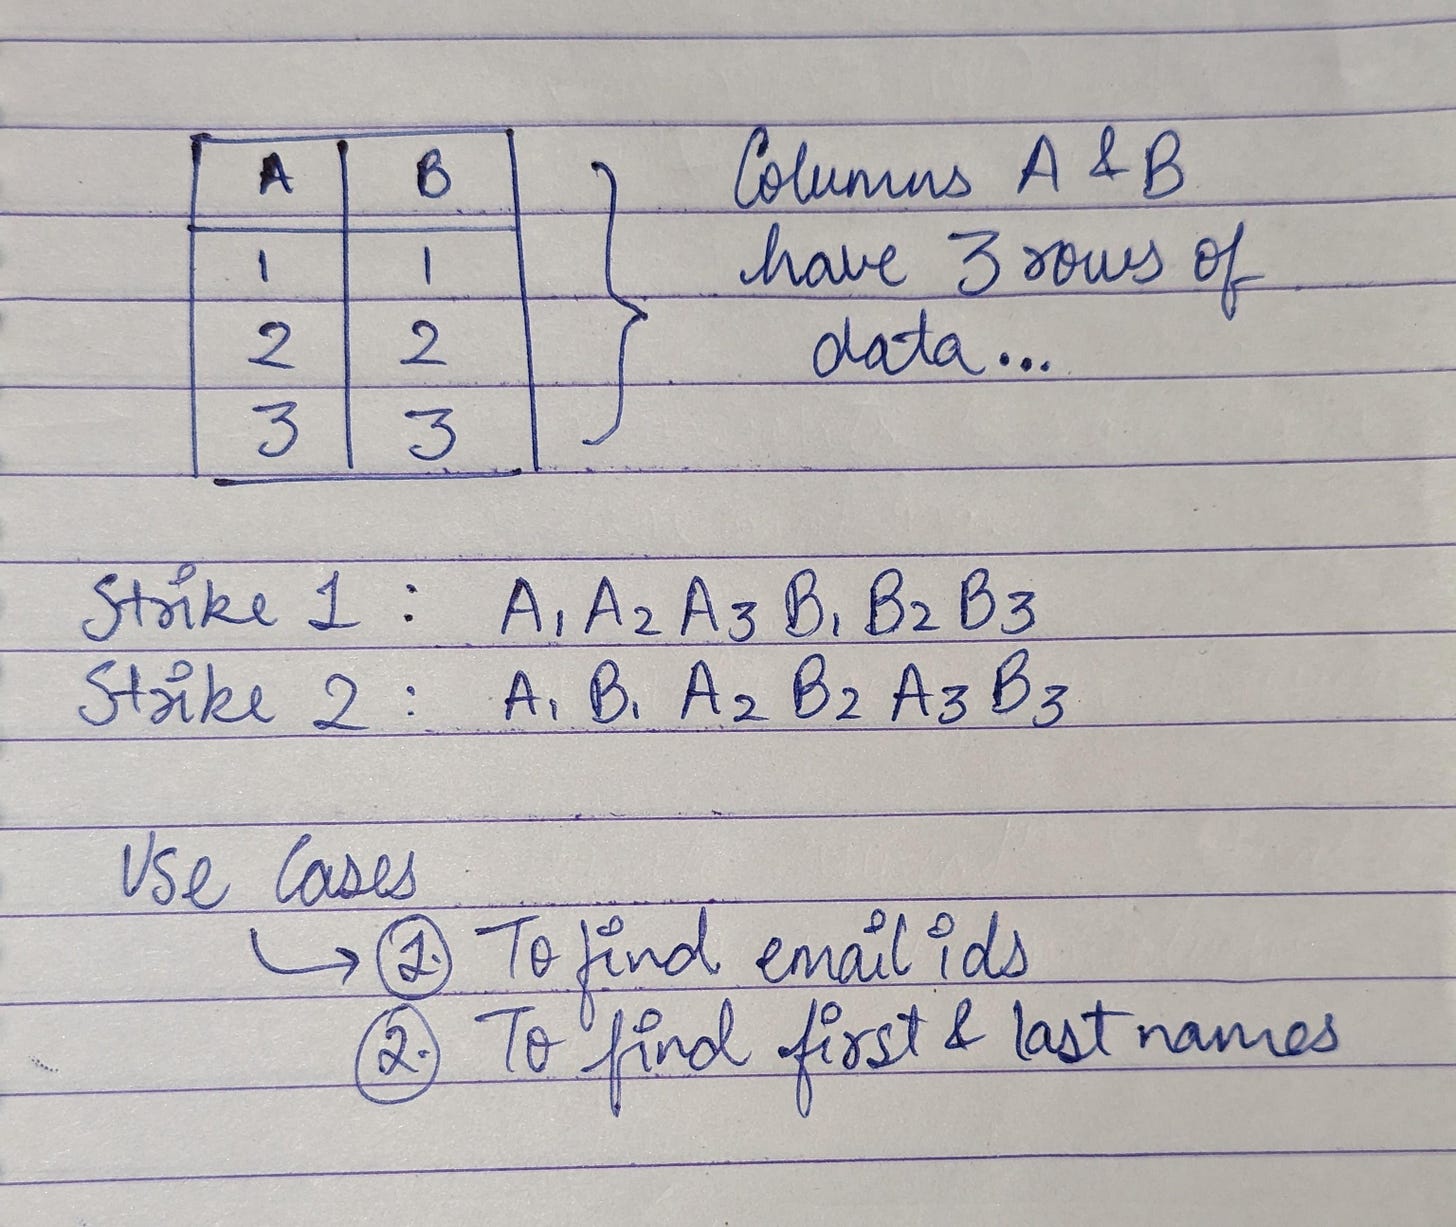 A B
1 1
2 2
3 3
Columns A & B
have 3 rows of
data...
Strike 1 : A1 A2 A3 B1 B2 B3
Strike 2 : A1 B1 A2 B2 A3 B3
Use Cases
1. To find email ids
2. To find first & last names